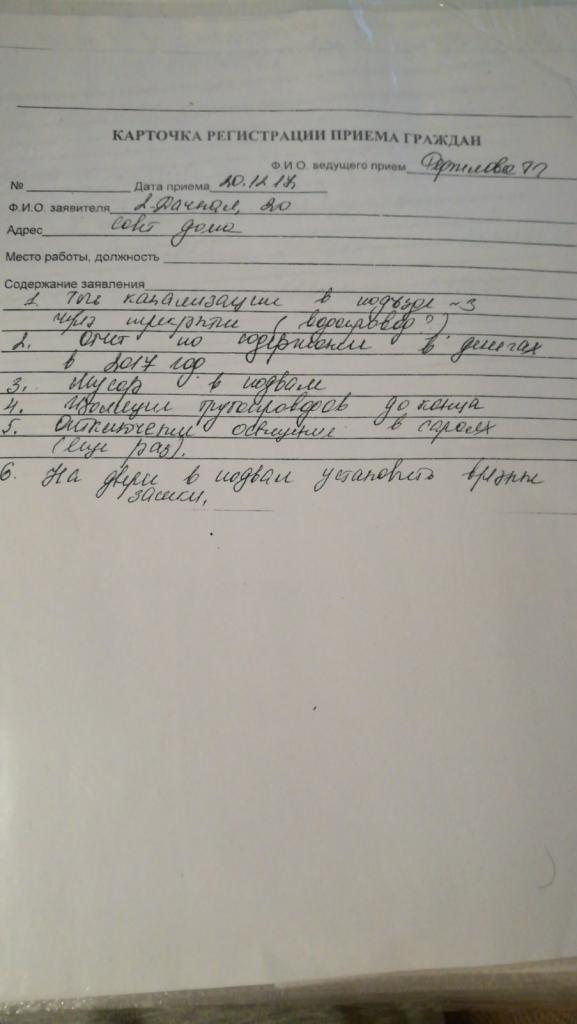 КАРТОЧКА РЕГИСТРАЦИИ ПРИЕМА ГРАЖДАН
Ф.И.О. ведущего прием
№ Дата приема 20.12.17
Ф.И.О. заявителя 2-Дачная, 20
Адрес совет дома
Место работы, должность
Содержание заявления
1. Течь канализации в подъезде №3
через перекрытия (водопровод?)
2. Отчет по содержанию в деньгах
в 2017 год
3. Мусор в подвале
4. Изоляция трубопроводов до конца
5. Отключение освещение в сараях
(еще раз).
6. На двери в подвал установить врезные
замки.